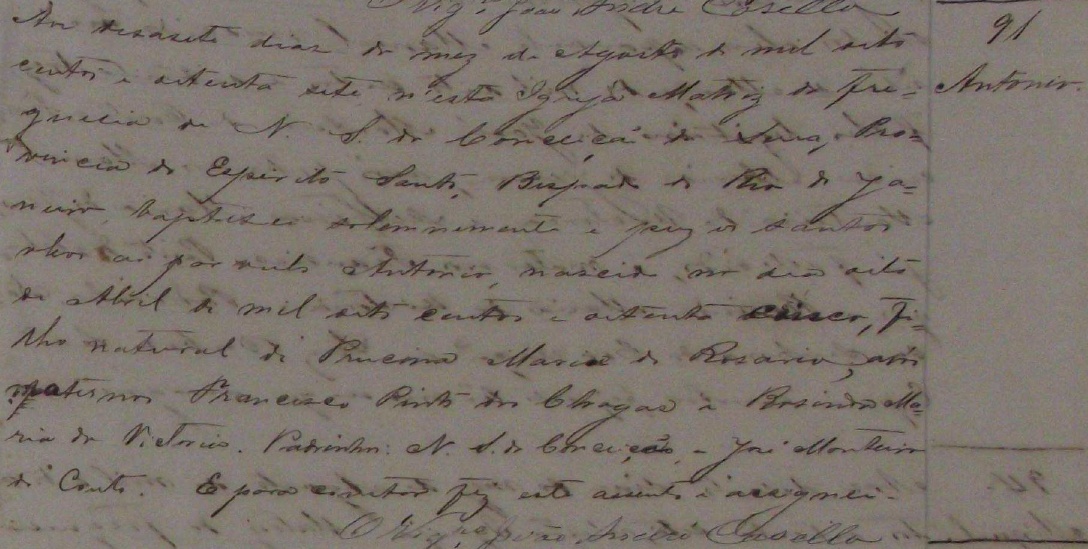 O Vigr.º João André Casella
91
Antonio.
Aos desasete dias do mez de Agosto de mil oito
centos e oitenta sete, n'esta Igreja Matriz da Fre=
guezia de N. S. da Conceição da Serra, Pro=
vincia do Espirito Santo, Bispado do Rio de Ja=
neiro, baptisei solemnemente e puz os Santos
oleos ao parvulo Antonio, nascido no dia oito
de Abril de mil oito centos e oitenta cinco, fi=
lho natural de Maria do Rosario, avós
maternos Francisco Pinto das Chagas e Rosinda Ma=
ria da Victoria. Padrinhos: N. S. da Conceição, e José Monteiro
do Couto. E para constar fiz este assento e assignei.
O Vigr.º João André Casella